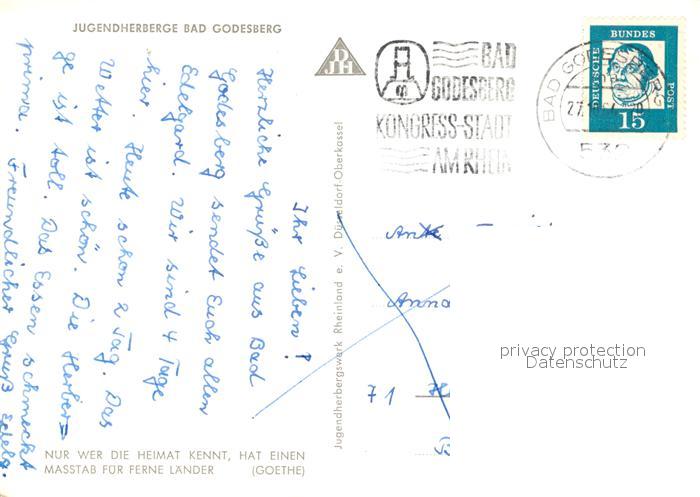 JUGENDHERBERGE BAD GODESBERG
Ihr Lieben!
Herzliche Grüße aus Bad
Godesberg sendet Euch allen
Edelgard. Wir sind 4 Tage
hier. Heute schon 2 Tag. Das
Wetter ist schön. Die Herber=
ge ist toll. Das Essen schmeckt
prima. Freundlicher Gruß Edelg.
NUR WER DIE HEIMAT KENNT, HAT EINEN
MASSTAB FÜR FERNE LÄNDER (GOETHE)
Jugendherbergswerk Rheinland e. V. Düsseldorf-Oberkassel
DJH
BAD
GODESBERG
KONGRESS-STADT
AM RHEIN
BAD GODESBERG
27.
532
DEUTSCHE
BUNDES
POST
15
Anna
71
privacy protection
Datenschutz